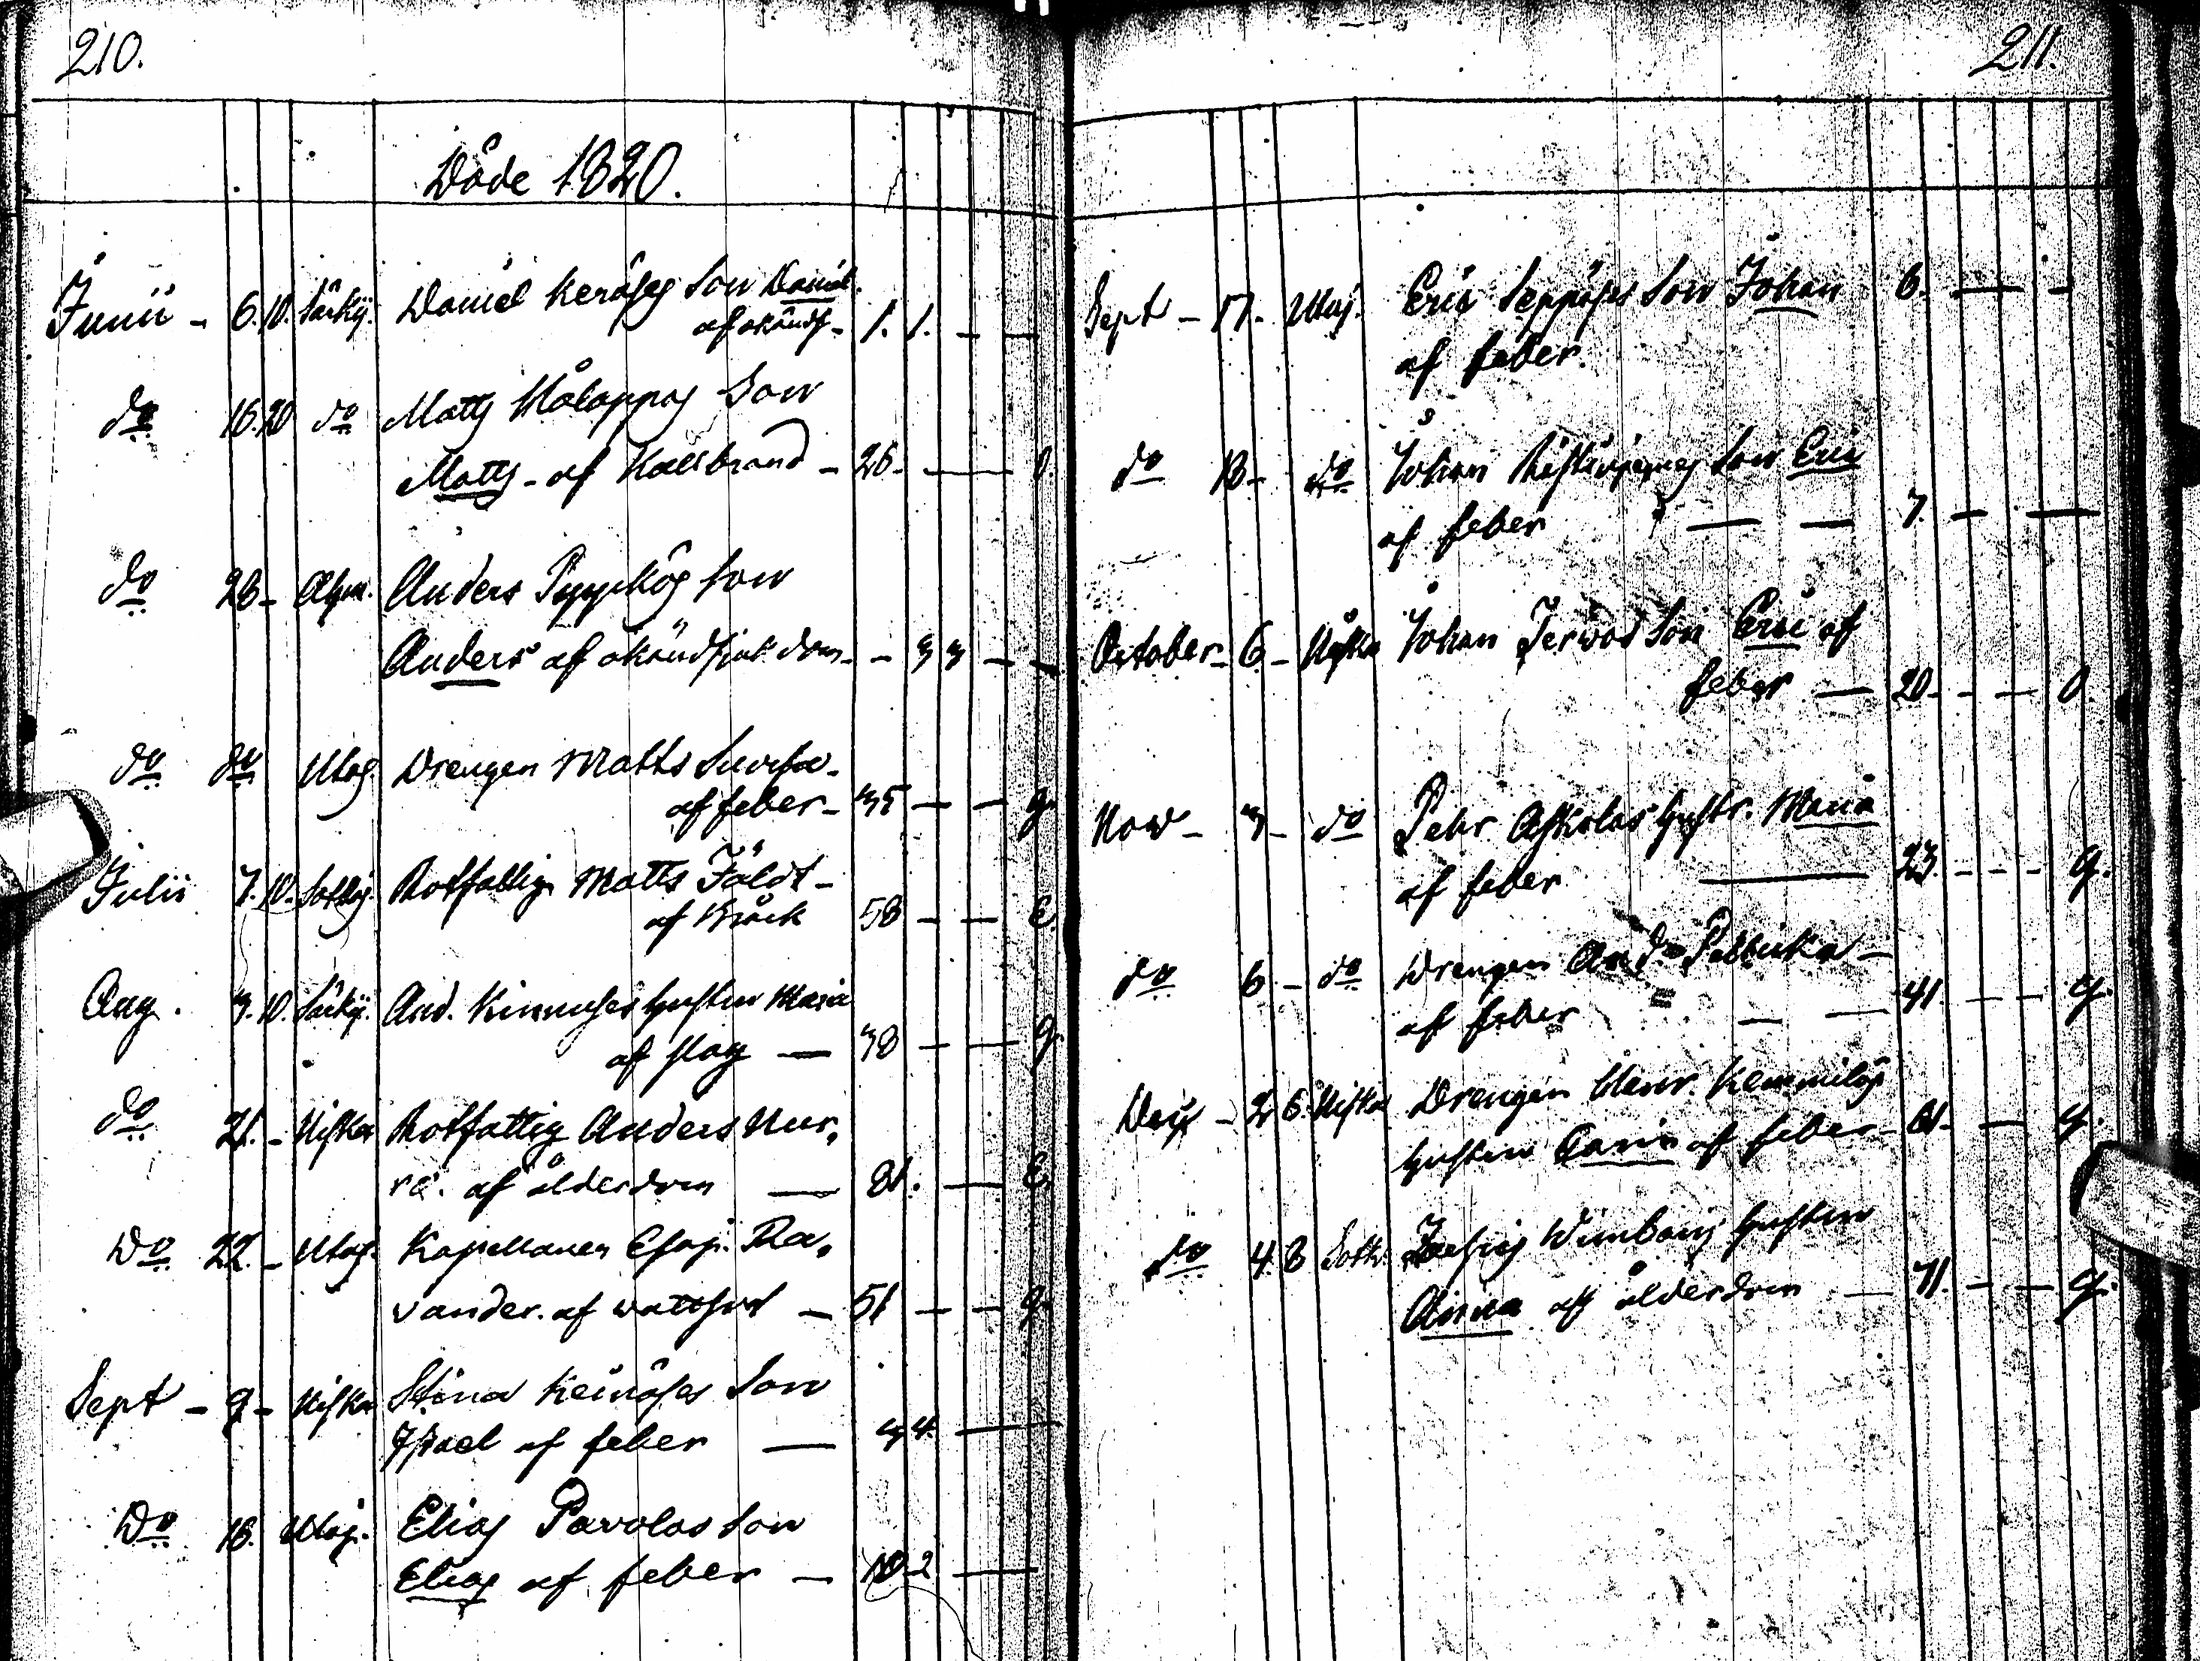 210.
Döde 1820.
Junii - 6. 10. Säckij. Daniel Keräses Son Daniel
af okänds - 1. 1. - -
do 16. 20 do Matts Son
Matts - af Kallbrand - 26. - 0.
do 26 - Anders Pyykös Son
Anders af okänd sjukdom - - 3 3 - -
do do Utaj. Drengen Matts
af feber - 35 - - g.
Julii 7. 10. Sotkj. Rotfattig Matts Fäldt -
af Bråck 58 - - E.
Aug. 3. 10. Säckij. And. Kinnuses hustru Maria
af slag - 38 - - g.
do 21. - Niska Rotfattig Anders Nur,
re. af ålderdom - 81. - E.
Do 22. - Utaj. Kapellanen Esaj. Ra,
vander. af wattsot - 51 - - g.
Sept - 9 - Niska Stina Keinäses Son
Israel af feber - 3 4. -
Do 16. Utaj. Elias Pavolas Son
Elias af feber - 10 2 -
211.
Sept - 17. - Utaj. Eric Seppäses Son Johan 6. - -
af feber.
do 13 - do Johan Son Eric
af feber - - 7. - -
October - 6 - Niska Johan Son Eric af
feber - 20. - - 0
Nov - 3 - do Pehr hustr. Maria
af feber - 23. - - - g.
do 6 - do Drengen And.
af feber - - 41 - - g.
Dec - 2 6. Niska Drengen Henr.
hustru Carin af feber - 61 - - g.
do 4. 8 Sotk. hustru
Anna af ålderdom - 71. - - g.